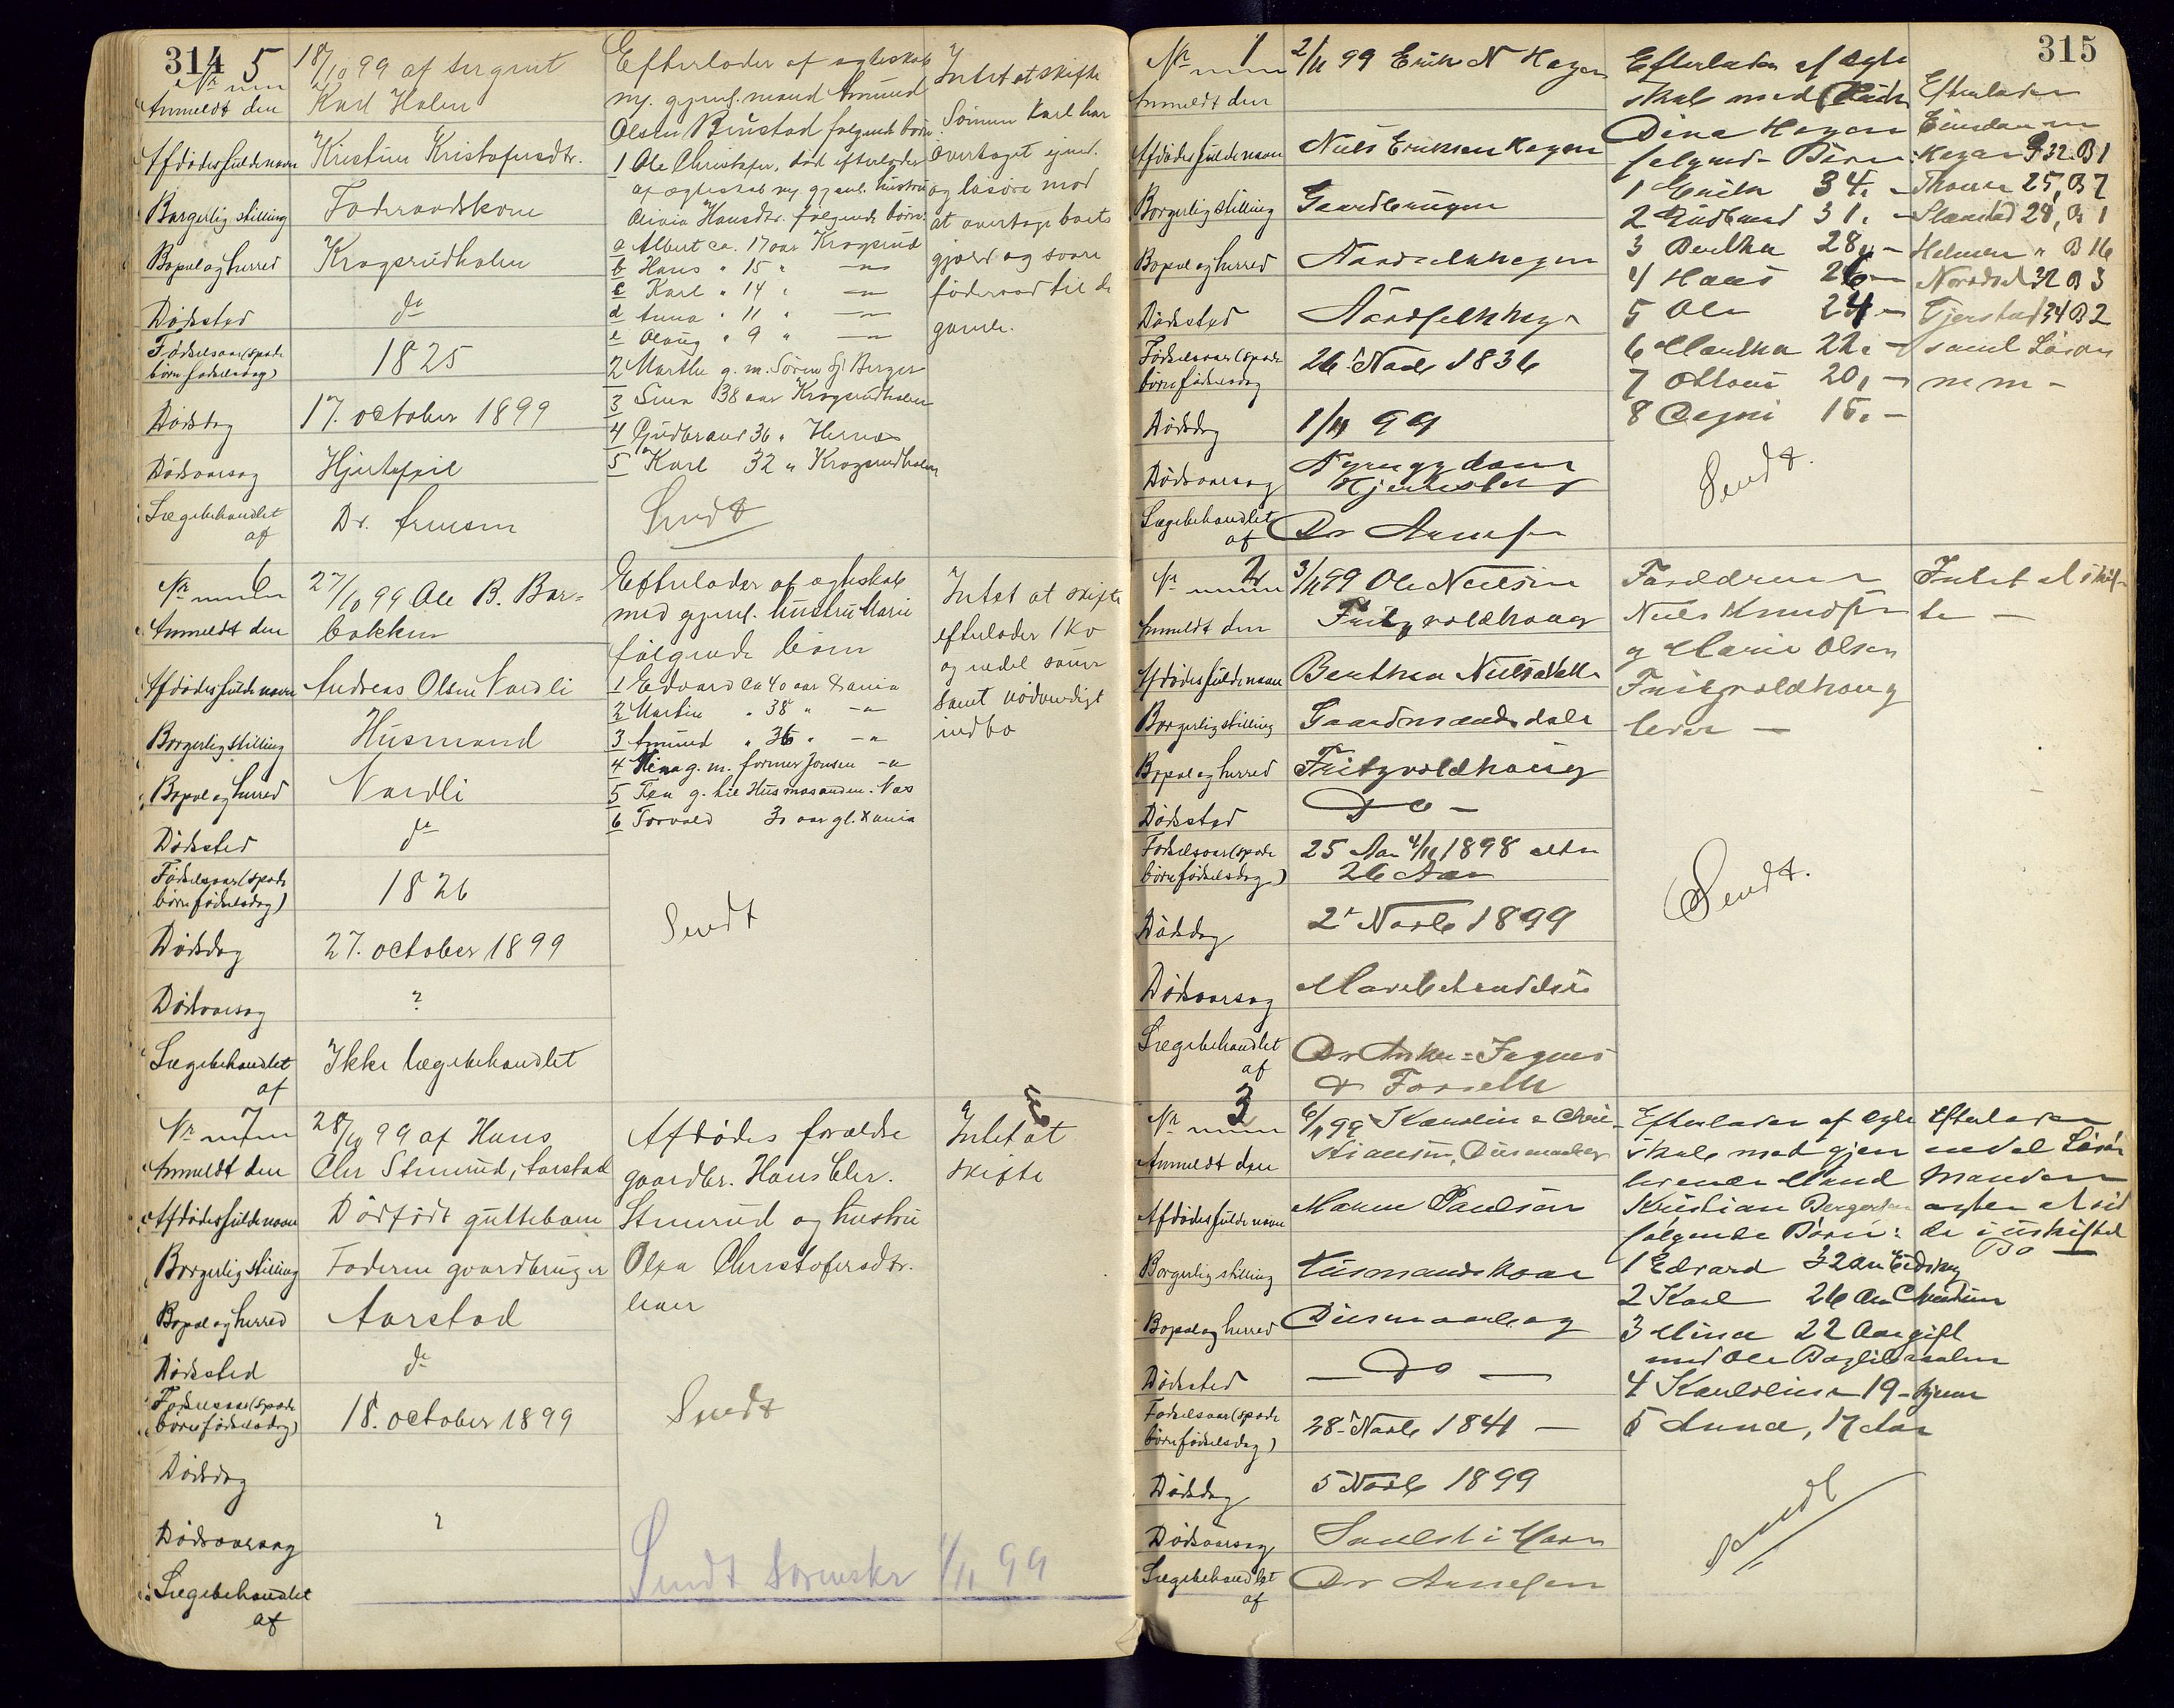 314
Nr 5
Anmeldt den
18/10 99 af sergent
Karl Holen
Afdødes fulde navn
Kristine Kristofersdtr.
Borgerlig stilling
Føderaadskone
Bopæl og herred
Krogsrudholen
Dødssted
do
Fødselsaar (spæde
børn fødselsdag)
1825
Dødsdag
17. october 1899
Dødsaarsag
Hjertefeil
Lægebehandlet
af
Dr. Arnesen
Efterlader af ægteskab
m. gjenl. mand Amund
Olsen Brustad følgende børn
1 Ole Christofer, død efterlader
af ægteskab m. gjenl. hustru
Olivia Hansdtr. følgende børn:
a Albert ca. 17 aar Krogsrud
b Hans " 15 " — " —
c Karl " 14 " — " —
d Anna " 11 " — " —
e Olaug " 9 " — " —
2 Marthe g. m. Søren Berger
3 Sina 38 aar Krogsrudholen
4 Gudbrand 36 " Hernes
5 Karl 32 " Krogsrudholen
Sendt
Intet at skifte
Sønnen Karl har
overtaget eiend.
og løsøre mod
at overtage boets
gjæld og svare
føderaad til de
gamle.
Nr 6
Anmeldt den
27/10 99 Ole B. Bar=
bakken
Afdødes fulde navn
Andreas Olsen Vardli
Borgerlig stilling
Husmand
Bopæl og herred
Vardli
Dødssted
do
Fødselsaar (spæde
børn fødselsdag)
1826
Dødsdag
27. october 1899
Dødsaarsag
?
Lægebehandlet
af
Ikke lægebehandlet
Efterlader af ægteskab
med gjenl. hustru Marie
følgende børn
1 Edvard ca 40 aar Xania
2 Martin " 38 " — " —
3 Amund " 36 " — " —
4 Mina g. m. former Jonsen — " —
5 g. til Næs
6 Torvald 30 aar gl. Xania
Sendt
Intet at skifte
efterlader 1 ko
og endel sauer
samt nødvendigt
indbo
Nr 7
Anmeldt den
28/10 99 af Hans
Chr Stenerud, Aarstad
Afdødes fulde navn
Dødfødt guttebarn
Borgerlig stilling
Faderen gaardbruger
Bopæl og herred
Aarstad
Dødssted
do
Fødselsaar (spæde
børn fødselsdag)
18. october 1899
Dødsdag
Dødsaarsag
?
Lægebehandlet
af
Afdødes forældre
gaardbr. Hans Chr.
Stenerud og hustru
Olea Christofersdtr.
lever
Sendt
Intet at
skifte
Sendt Sorenskr 1/11 99
315
Nr 1
Anmeldt den
2/11 99 Erik N Hagen
Afdødes fulde navn
Niels Eriksen Hagen
Borgerlig stilling
Gaardbruger
Bopæl og herred
Dødssted
Fødselsaar (spæde
børn fødselsdag
26 Novb 1836
Dødsdag
1/11 99
Dødsaarsag
Lægebehandlet
af
Dr Arnesen
Efterlader af Ægte
skab med
Dina Hagen
følgende Børn:
1 Erik 34, —
2 Gudbrand 31, —
3 Berthe 28, —
4 Hans 26 —
5 Ole 24 —
6 Marthe 22, —
7 20, —
8 15, —
Sendt.
Efterlader
Eiendommen
Hagen 32, B 1
25, B 7
28, B 1
" B 16
32 B 3
34 B 2
samt Løsøre
m m —
Nr 2
Anmeldt den
3/11 99 Ole Nielsen
Fritzvoldhaug
Afdødes fulde navn
Berthea Nielsdatter
Borgerlig stilling
Gaardmandsdatter
Bopæl og herred
Fritzvoldhaug
Dødssted
Do —
Fødselsaar (spæde
børn fødselsdag)
25 Aar 4/11 1898 altsaa
26 Aar
Dødsdag
2 Novb 1899
Dødsaarsag
Lægebehandlet
af
Forældrene
Niels Knudsen
og Marie Olsen
Fritzvoldhaug
lever —
Sendt.
Intet at skif-
te —
Nr 3
Anmeldt den
6/11 99
Afdødes fulde navn
Maren Paulsen
Borgerlig stilling
Husmandskone
Bopæl og herred
Dødssted
— Do —
Fødselsaar (spæde
børn fødselsdag)
28 Novb 1841 —
Dødsdag
5 Novb 1899
Dødsaarsag
Lægebehandlet
af
Dr Arnesen
Efterlader af Ægte
skab med gjen
levende Mand
Kristian Bergersen
følgende Børn:
1 Edvard 32 Aar Eidsvog
2 Karl 26 Aar
3 Mina 22 Aar gift
med Ole
4 Karoline 19 — hjemme
5 Anna, 17 Aar
Sendt
Efterlader
endel Løsøre
Manden
agter at sid
de i uskiftet
Bo —